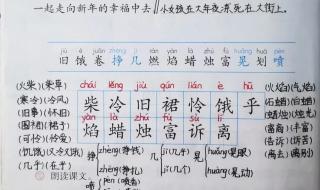 一起走向新年的幸福中去∥小女孩在大年夜冻死在大街上。
jiù è juǎn zhèng jǐ rán yàn là zhú fù huǎng huá pēn
旧 饿 卷 挣 几 燃 焰 蜡 烛 富 晃 划 喷
(火柴)(柴草) chái lěng jiù qún lián è hū (火焰)(气焰)
(寒冷)(冷风) 柴 冷 旧 裙 怜 饿 乎 (石蜡)(白蜡)
(旧事)(怀旧) yàn là zhú fù sù lí (蜡烛)(烛光)
(围裙)(裙子) 焰 蜡 烛 富 诉 离 (富商)(丰富)
(可怜)(怜爱) (告诉)(诉苦)
(饥饿)(又冷又饿) 挣 zhèng(挣钱) zhēng(挣扎) 几 jǐ(几个) jī(几乎) 晃 huǎng(晃眼) huàng(晃动) (离去)(离别)
(几乎)(在乎)
朗读课文。 喷 pēn(喷)